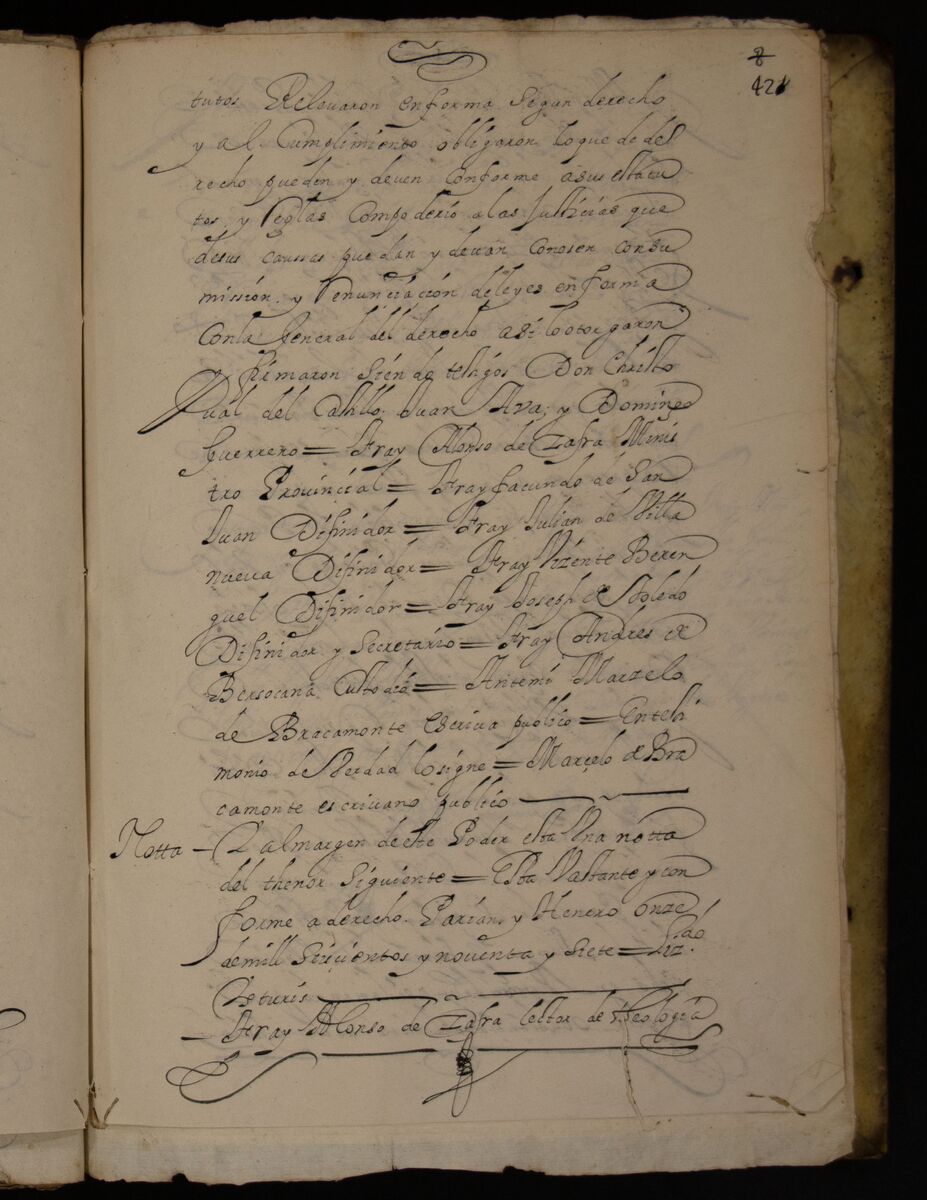 8
421
tutos Relevaron en forma segun derecho
y al Cumplimiento obligaron lo que de de
recho pueden y deven conforme a sus estatu
tos y Reglas Con poderio a las Justicias que
de sus caussas puedan y devan conoser con su
mission y Renunciación de leyes en forma
Con la general del derecho asi lo otorgaron
y firmaron siendo testigos Don Christo
ual del Castillo, Juan Alva; y Domingo
guerrero = fray Alonso de Zafra Minis
tro Provincial = fray facundo de San
Juan Difinidor = fray Julian de Villa
nueva Difinidor = fray Vizente Beren
guel Difinidor = fray Joseph de Toledo
Difinidor y Secretario = fray Andres de
Bersocana Custodio = Antemi Marzelo
de Bracamonte escriva publico = En testi
monio de Verdad lo signe = Marçelo de Bra
camonte escrivano publico
Notta – Y al margen de este Poder esta Una notta
del thenor siguiente = Esta Vastante y con
forme a derecho. Parian, y Henero onze
de mill seisçientos y noventa y siete = Lizdo.
Zeturis
– fray Alonso de Zafra lector de theologia